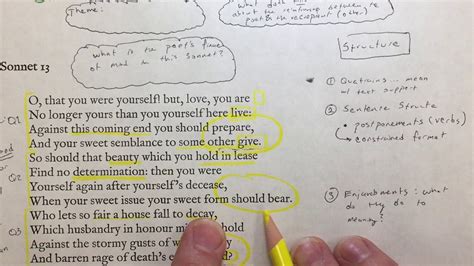 Theme:
about the relationship between
poet & the recipient (other)
what is the poet's frame
of mind in this Sonnet?
Structure
Sonnet 13
① Quatrains ... mean
w/ text support
② Sentence Structe
• postponements (verbs)
constrained format
③ Enjambments: what
do they do to
meaning?
Q1
O, that you were yourself! but, love, you are
No longer yours than you yourself here live:
Against this coming end you should prepare,
And your sweet semblance to some other give.
Q2
So should that beauty which you hold in lease
Find no determination: then you were
Yourself again after yourself's decease,
When your sweet issue your sweet form should bear.
Who lets so fair a house fall to decay,
Which husbandry in honour might hold
Against the stormy gusts of w
And barren rage of death's e